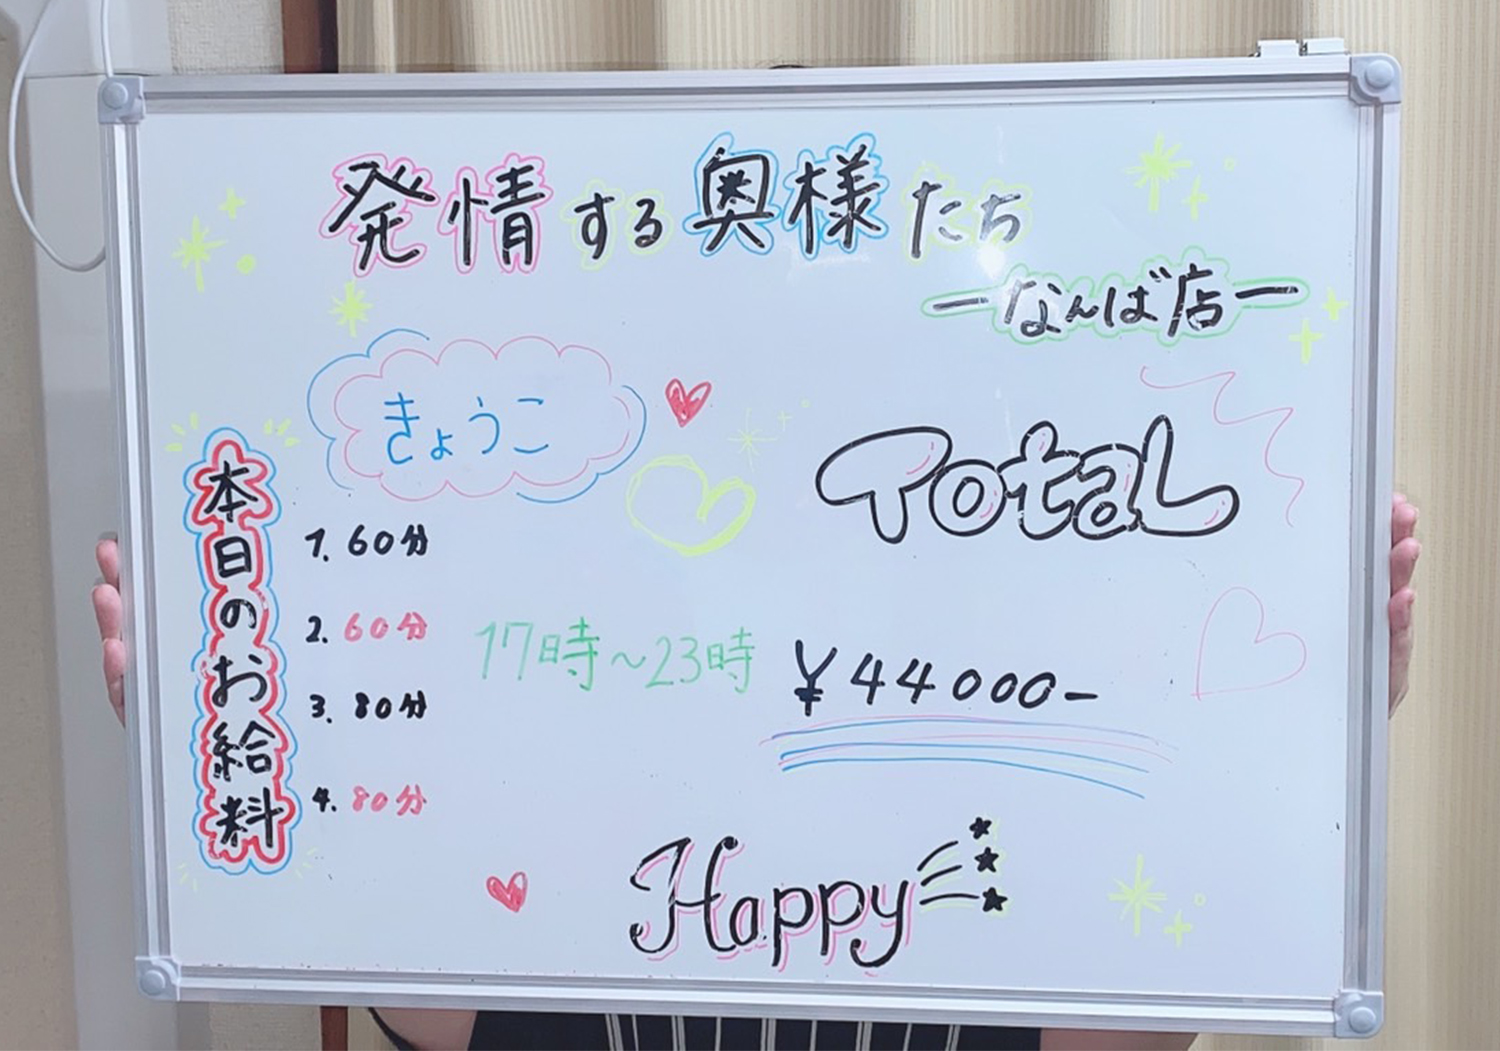 発情する奥様たち
ーなんば店ー
きょうこ
本日のお給料
1. 60分
2. 60分
3. 80分
4. 80分
17時～23時
Total
¥44000-
Happy